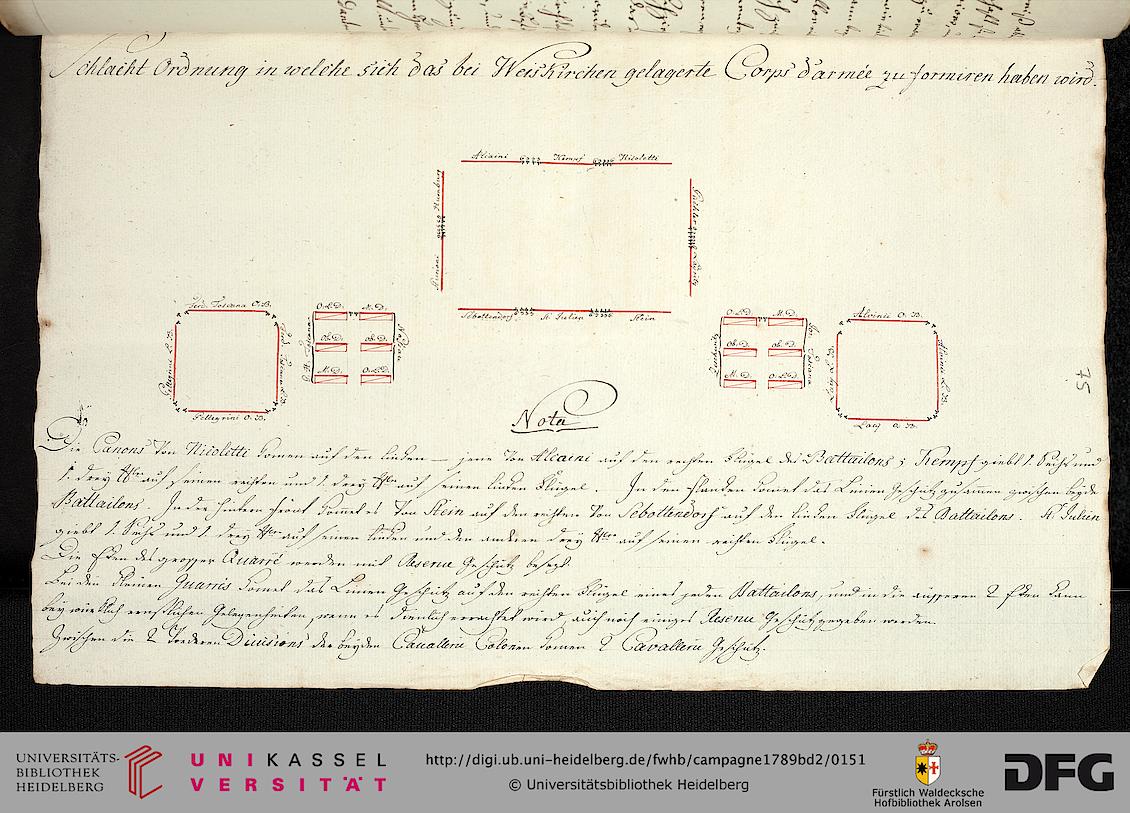 Schlacht Ordnung in welche sich das bei Weiskirchen gelagerte Corps d'armée zu formiren haben wird.
Alcaini Kempf Nicoletti
Ferd. Toscana O. B.
O. L. D. M. D.
Ob. D. Ob. D.
M. D. O. L. D.
Pellegrini L. B.
Pellegrini O. B.
Sebottendorf St. Julien Stein
O. L. D. M. D.
Ob. D. Ob. D.
M. D. O. L. D.
Alvinzi O. B.
Alvinzi L. B.
Lacy L. B.
Lacy O. B.
75
Nota
Die Canons von Nicoletti komen auf den linken — jene von Alcaini auf den rechten Flügel des Battaillons; Kempf giebt 1. Sechs und
1. drey auf seinen rechten und 1. drey auf seinen linken Flügel. In den Flanken komet das Linien Geschütz zusammen zwischen beyde
Battaillons. In der hintern Front komet es von Stein auf den rechten von Sebottendorf auf den linken Flügel des Battaillons. St. Julien
giebt 1. Sechs und 1. drey auf seinen linken und den anderen drey auf seinen rechten Flügel.
Die Eken des grossen Quarré werden mit Reserve Geschütz besezt.
Bei den kleinen Quarrés komet das Linien Geschütz auf den rechten Flügel eines jeden Battaillons, und in die äusseren 2 Eken kann
bey wirklich ernstlichen Gelegenheiten, wenn es dienlich erachtet wird, auch noch einiges Reserve Geschütz gegeben werden.
Zwischen die 2 vorderen Divisions der beyden Cavallerie Colonen komen 2 Cavallerie Geschütz.
UNIVERSITÄTS-
BIBLIOTHEK
HEIDELBERG
UNIKASSEL
VERSITÄT
http://digi.ub.uni-heidelberg.de/fwhb/campagne1789bd2/0151
© Universitätsbibliothek Heidelberg
Fürstlich Waldecksche
Hofbibliothek Arolsen
DFG